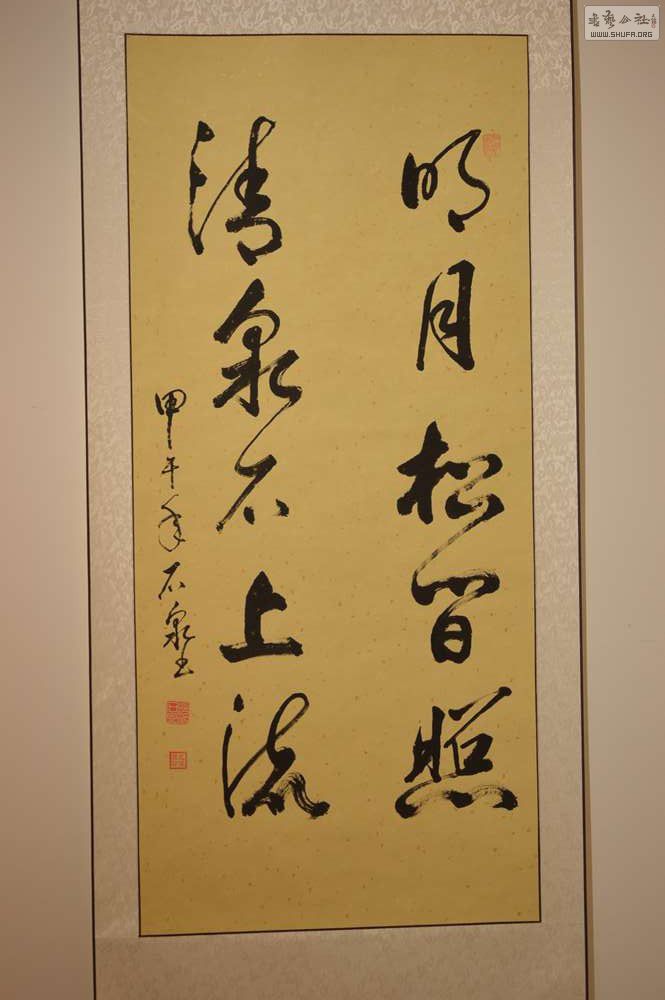 明月松间照
清泉石上流
甲午年石泉书
WWW.SHUFA.ORG